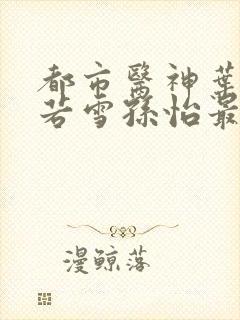 都市醫神葉
若雪孫怡最
漫鯨落